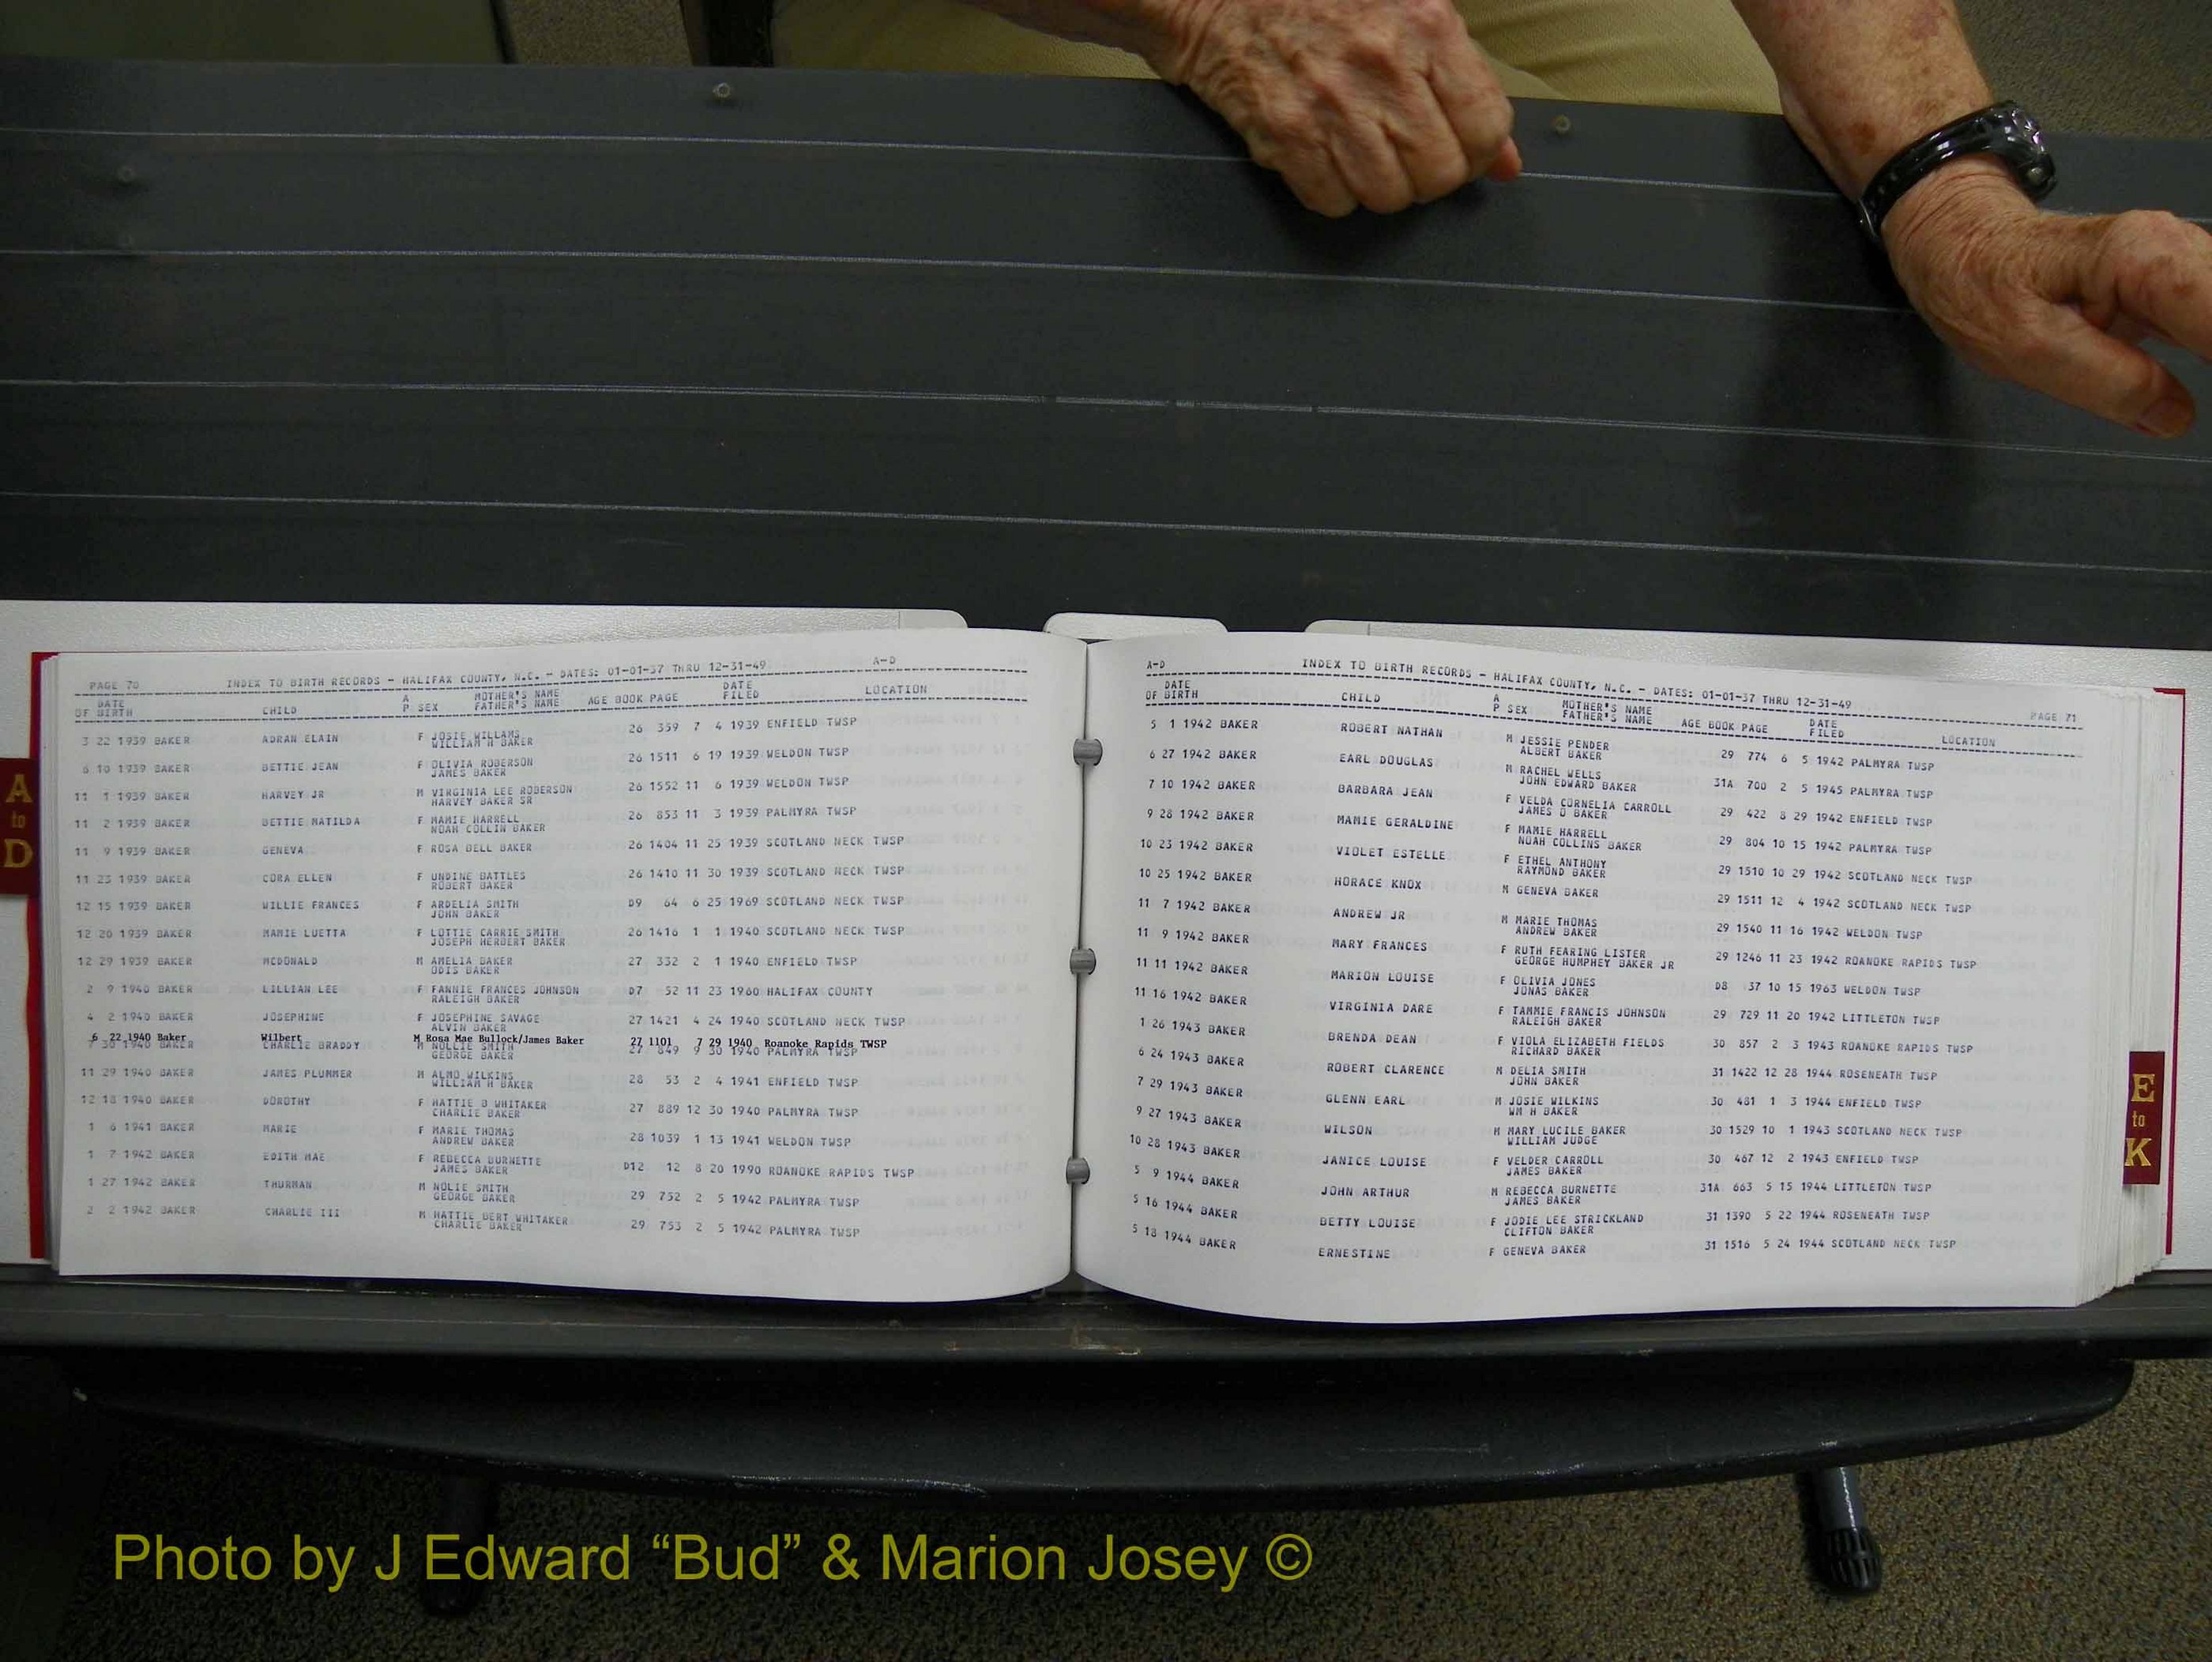 A
to
D
PAGE 70 INDEX TO BIRTH RECORDS - HALIFAX COUNTY, N.C. - DATES: 01-01-37 THRU 12-31-49 A-D
DATE OF BIRTH CHILD A P SEX MOTHER'S NAME FATHER'S NAME AGE BOOK PAGE DATE FILED LOCATION
3 22 1939 BAKER ADRAN ELAIN F JOSIE WILLAMS 26 359 7 4 1939 ENFIELD TWSP
WILLIAM H BAKER
6 10 1939 BAKER BETTIE JEAN F OLIVIA ROBERSON 26 1511 6 19 1939 WELDON TWSP
JAMES BAKER
11 1 1939 BAKER HARVEY JR M VIRGINIA LEE ROBERSON 26 1552 11 6 1939 WELDON TWSP
HARVEY BAKER SR
11 2 1939 BAKER BETTIE MATILDA F MAMIE HARRELL 26 853 11 3 1939 PALMYRA TWSP
NOAH COLLIN BAKER
11 9 1939 BAKER GENEVA F ROSA BELL BAKER 26 1404 11 25 1939 SCOTLAND NECK TWSP
11 23 1939 BAKER CORA ELLEN F UNDINE BATTLES 26 1410 11 30 1939 SCOTLAND NECK TWSP
ROBERT BAKER
12 15 1939 BAKER WILLIE FRANCES F ARDELIA SMITH D9 64 6 25 1969 SCOTLAND NECK TWSP
JOHN BAKER
12 20 1939 BAKER MAMIE LUETTA F LOTTIE CARRIE SMITH 26 1416 1 1 1940 SCOTLAND NECK TWSP
JOSEPH HERBERT BAKER
12 29 1939 BAKER MCDONALD M AMELIA BAKER 27 332 2 1 1940 ENFIELD TWSP
ODIS BAKER
2 9 1940 BAKER LILLIAN LEE F FANNIE FRANCES JOHNSON D7 52 11 23 1960 HALIFAX COUNTY
RALEIGH BAKER
4 2 1940 BAKER JOSEPHINE F JOSEPHINE SAVAGE 27 1421 4 24 1940 SCOTLAND NECK TWSP
ALVIN BAKER
6 22 1940 Baker Wilbert M Rosa Mae Bullock/James Baker 27 1101 7 29 1940 Roanoke Rapids TWSP
7 30 1940 BAKER CHARLIE BRADDY M NOLLIE SMITH 27 849 9 30 1940 PALMYRA TWSP
GEORGE BAKER
11 29 1940 BAKER JAMES PLUMMER M ALMO WILKINS 28 53 2 4 1941 ENFIELD TWSP
WILLIAM H BAKER
12 18 1940 BAKER DOROTHY F HATTIE B WHITAKER 27 889 12 30 1940 PALMYRA TWSP
CHARLIE BAKER
1 6 1941 BAKER MARIE F MARIE THOMAS 28 1039 1 13 1941 WELDON TWSP
ANDREW BAKER
1 7 1942 BAKER EDITH MAE F REBECCA BURNETTE D12 12 8 20 1990 ROANOKE RAPIDS TWSP
JAMES BAKER
1 27 1942 BAKER THURMAN M NOLIE SMITH 29 752 2 5 1942 PALMYRA TWSP
GEORGE BAKER
2 2 1942 BAKER CHARLIE III M HATTIE BERT WHITAKER 29 753 2 5 1942 PALMYRA TWSP
CHARLIE BAKER
A-D INDEX TO BIRTH RECORDS - HALIFAX COUNTY, N.C. - DATES: 01-01-37 THRU 12-31-49 PAGE 71
DATE OF BIRTH CHILD A P SEX MOTHER'S NAME FATHER'S NAME AGE BOOK PAGE DATE FILED LOCATION
5 1 1942 BAKER ROBERT NATHAN M JESSIE PENDER 29 774 6 5 1942 PALMYRA TWSP
ALBERT BAKER
6 27 1942 BAKER EARL DOUGLAS M RACHEL WELLS 31A 700 2 5 1945 PALMYRA TWSP
JOHN EDWARD BAKER
7 10 1942 BAKER BARBARA JEAN F VELDA CORNELIA CARROLL 29 422 8 29 1942 ENFIELD TWSP
JAMES O BAKER
9 28 1942 BAKER MAMIE GERALDINE F MAMIE HARRELL 29 804 10 15 1942 PALMYRA TWSP
NOAH COLLINS BAKER
10 23 1942 BAKER VIOLET ESTELLE F ETHEL ANTHONY 29 1510 10 29 1942 SCOTLAND NECK TWSP
RAYMOND BAKER
10 25 1942 BAKER HORACE KNOX M GENEVA BAKER 29 1511 12 4 1942 SCOTLAND NECK TWSP
11 7 1942 BAKER ANDREW JR M MARIE THOMAS 29 1540 11 16 1942 WELDON TWSP
ANDREW BAKER
11 9 1942 BAKER MARY FRANCES F RUTH FEARING LISTER 29 1246 11 23 1942 ROANOKE RAPIDS TWSP
GEORGE HUMPHEY BAKER JR
11 11 1942 BAKER MARION LOUISE F OLIVIA JONES D8 37 10 15 1963 WELDON TWSP
JONAS BAKER
11 16 1942 BAKER VIRGINIA DARE F TAMMIE FRANCIS JOHNSON 29 729 11 20 1942 LITTLETON TWSP
RALEIGH BAKER
1 26 1943 BAKER BRENDA DEAN F VIOLA ELIZABETH FIELDS 30 857 2 3 1943 ROANOKE RAPIDS TWSP
RICHARD BAKER
6 24 1943 BAKER ROBERT CLARENCE M DELIA SMITH 31 1422 12 28 1944 ROSENEATH TWSP
JOHN BAKER
7 29 1943 BAKER GLENN EARL M JOSIE WILKINS 30 481 1 3 1944 ENFIELD TWSP
WM H BAKER
9 27 1943 BAKER WILSON M MARY LUCILE BAKER 30 1529 10 1 1943 SCOTLAND NECK TWSP
WILLIAM JUDGE
10 28 1943 BAKER JANICE LOUISE F VELDER CARROLL 30 467 12 2 1943 ENFIELD TWSP
JAMES BAKER
5 9 1944 BAKER JOHN ARTHUR M REBECCA BURNETTE 31A 663 5 15 1944 LITTLETON TWSP
JAMES BAKER
5 16 1944 BAKER BETTY LOUISE F JODIE LEE STRICKLAND 31 1390 5 22 1944 ROSENEATH TWSP
CLIFTON BAKER
5 18 1944 BAKER ERNESTINE F GENEVA BAKER 31 1516 5 24 1944 SCOTLAND NECK TWSP
E
to
K
Photo by J Edward “Bud” & Marion Josey ©